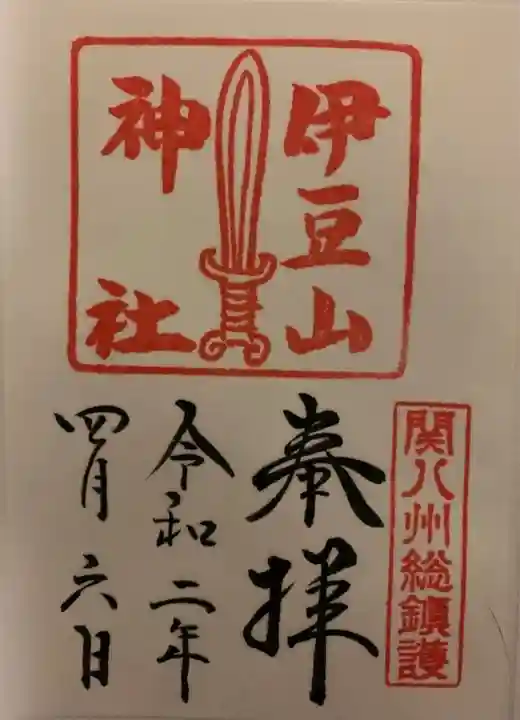 伊豆山
神社
関八州総鎮護
奉拝
令和二年
四月六日